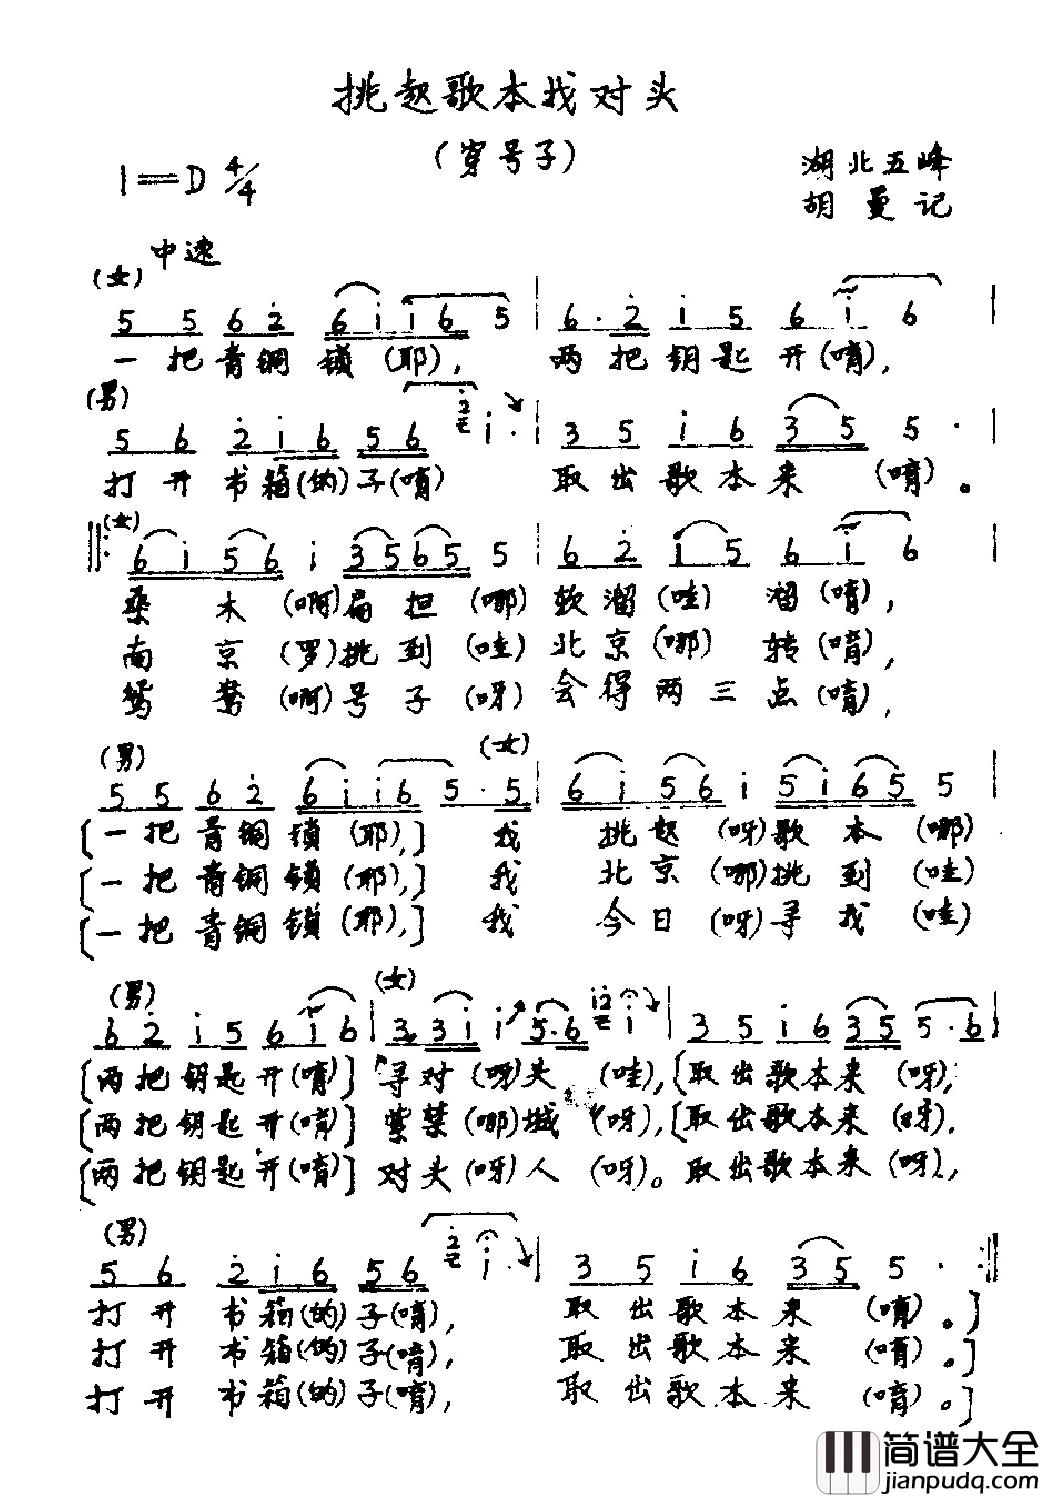 挑起歌本找对头
(穿号子)
1=D 4/4
湖北五峰
胡曼记
中速
(女)
5 5 6 2 6 i i 6 5 | 6· 2 i 5 6 i 6 |
一把青铜锁(耶), 两把钥匙开(唷),
(男)
5 6 2 i 6 5 6 2 i· 3 5 i 6 3 5 5· |
打开书箱(的)子(唷) 取出歌本来(唷)。
(女)
6 i 5 6 i 3 5 6 5 5 | 6 2 i 5 6 i 6 |
桑木(啊)扁担(哪)软溜(哇)溜(唷),
南京(罗)挑到(哇)北京(哪)转(唷),
鸳鸯(啊)号子(呀)会得两三点(唷),
(男) (女)
5 5 6 2 6 i i 6 5· 5 | 6 i 5 6 i 5 i 6 5 5 |
[一把青铜锁(耶),] 我挑起(呀)歌本(哪)
[一把青铜锁(耶),] 我北京(哪)挑到(哇)
[一把青铜锁(耶),] 我今日(呀)寻找(哇)
(男) (女)
6 2 i 5 6 i 6 | 3 3 i i 5·6 i 2 i | 3 5 i 6 3 5 5·6 |
[两把钥匙开(唷)] 寻对(呀)头(哇),[取出歌本来(呀),
[两把钥匙开(唷)] 紫禁(哪)城(呀),[取出歌本来(呀),
[两把钥匙开(唷)] 对头(呀)人(呀)。取出歌本来(呀),
(男)
5 6 2 i 6 5 6 2 i | 3 5 i 6 3 5 5· :|
打开书箱(的)子(唷), 取出歌本来(唷)。]
打开书箱(的)子(唷), 取出歌本来(唷)。]
打开书箱(的)子(唷), 取出歌本来(唷)。]
简谱大全
jianpudq.com